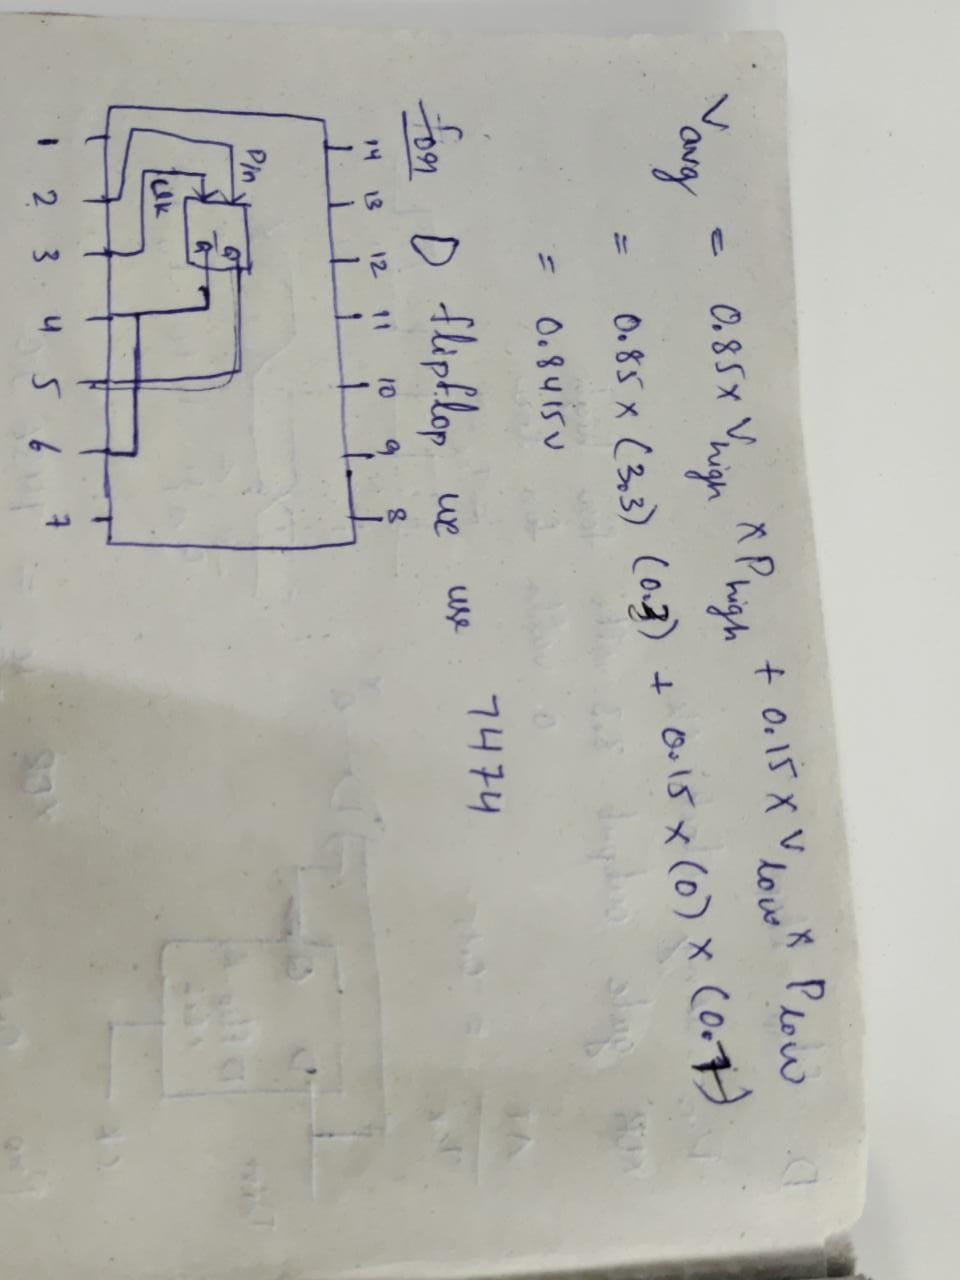 Vavg = 0.85 x Vhigh x Phigh + 0.15 x Vlow x Plow
= 0.85 x (3.3) (0.3) + 0.15 x (0) x (0.7)
= 0.8415V
for D flipflop we use 7474
14 13 12 11 10 9 8
D/n
CLK
Q Q̅
1 2 3 4 5 6 7